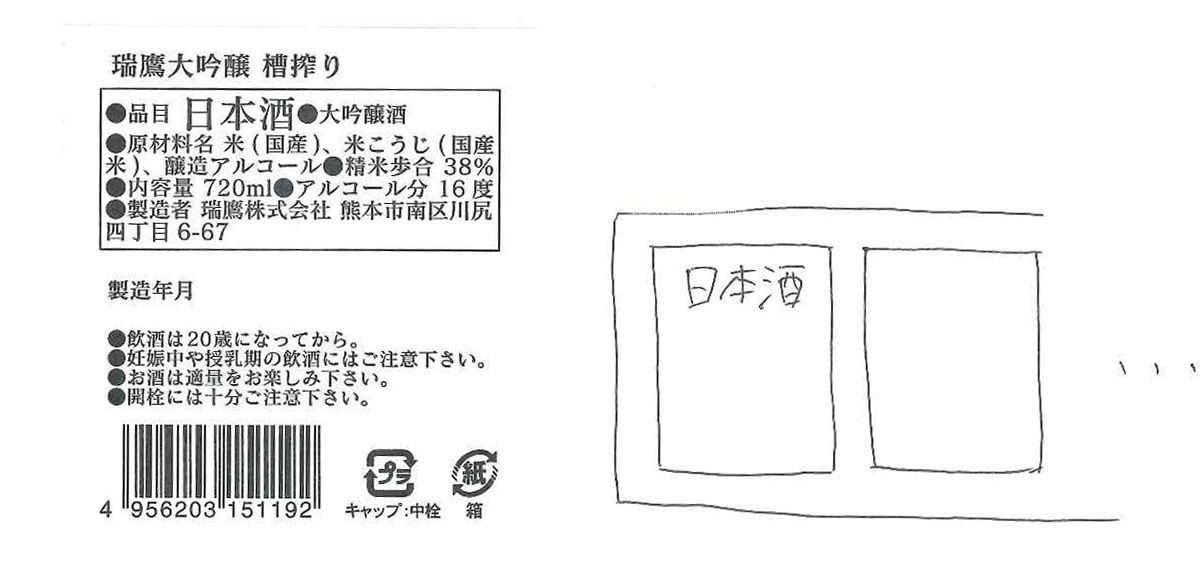 瑞鷹大吟醸 槽搾り
●品目 日本酒●大吟醸酒
●原材料名 米(国産)、米こうじ(国産
米)、醸造アルコール●精米歩合 38%
●内容量 720ml●アルコール分 16度
●製造者 瑞鷹株式会社 熊本市南区川尻
四丁目6-67
製造年月
●飲酒は20歳になってから。
●妊娠中や授乳期の飲酒にはご注意下さい。
●お酒は適量をお楽しみ下さい。
●開栓には十分ご注意下さい。
4 956203 151192
プラ
キャップ:中栓
紙
箱
日本酒